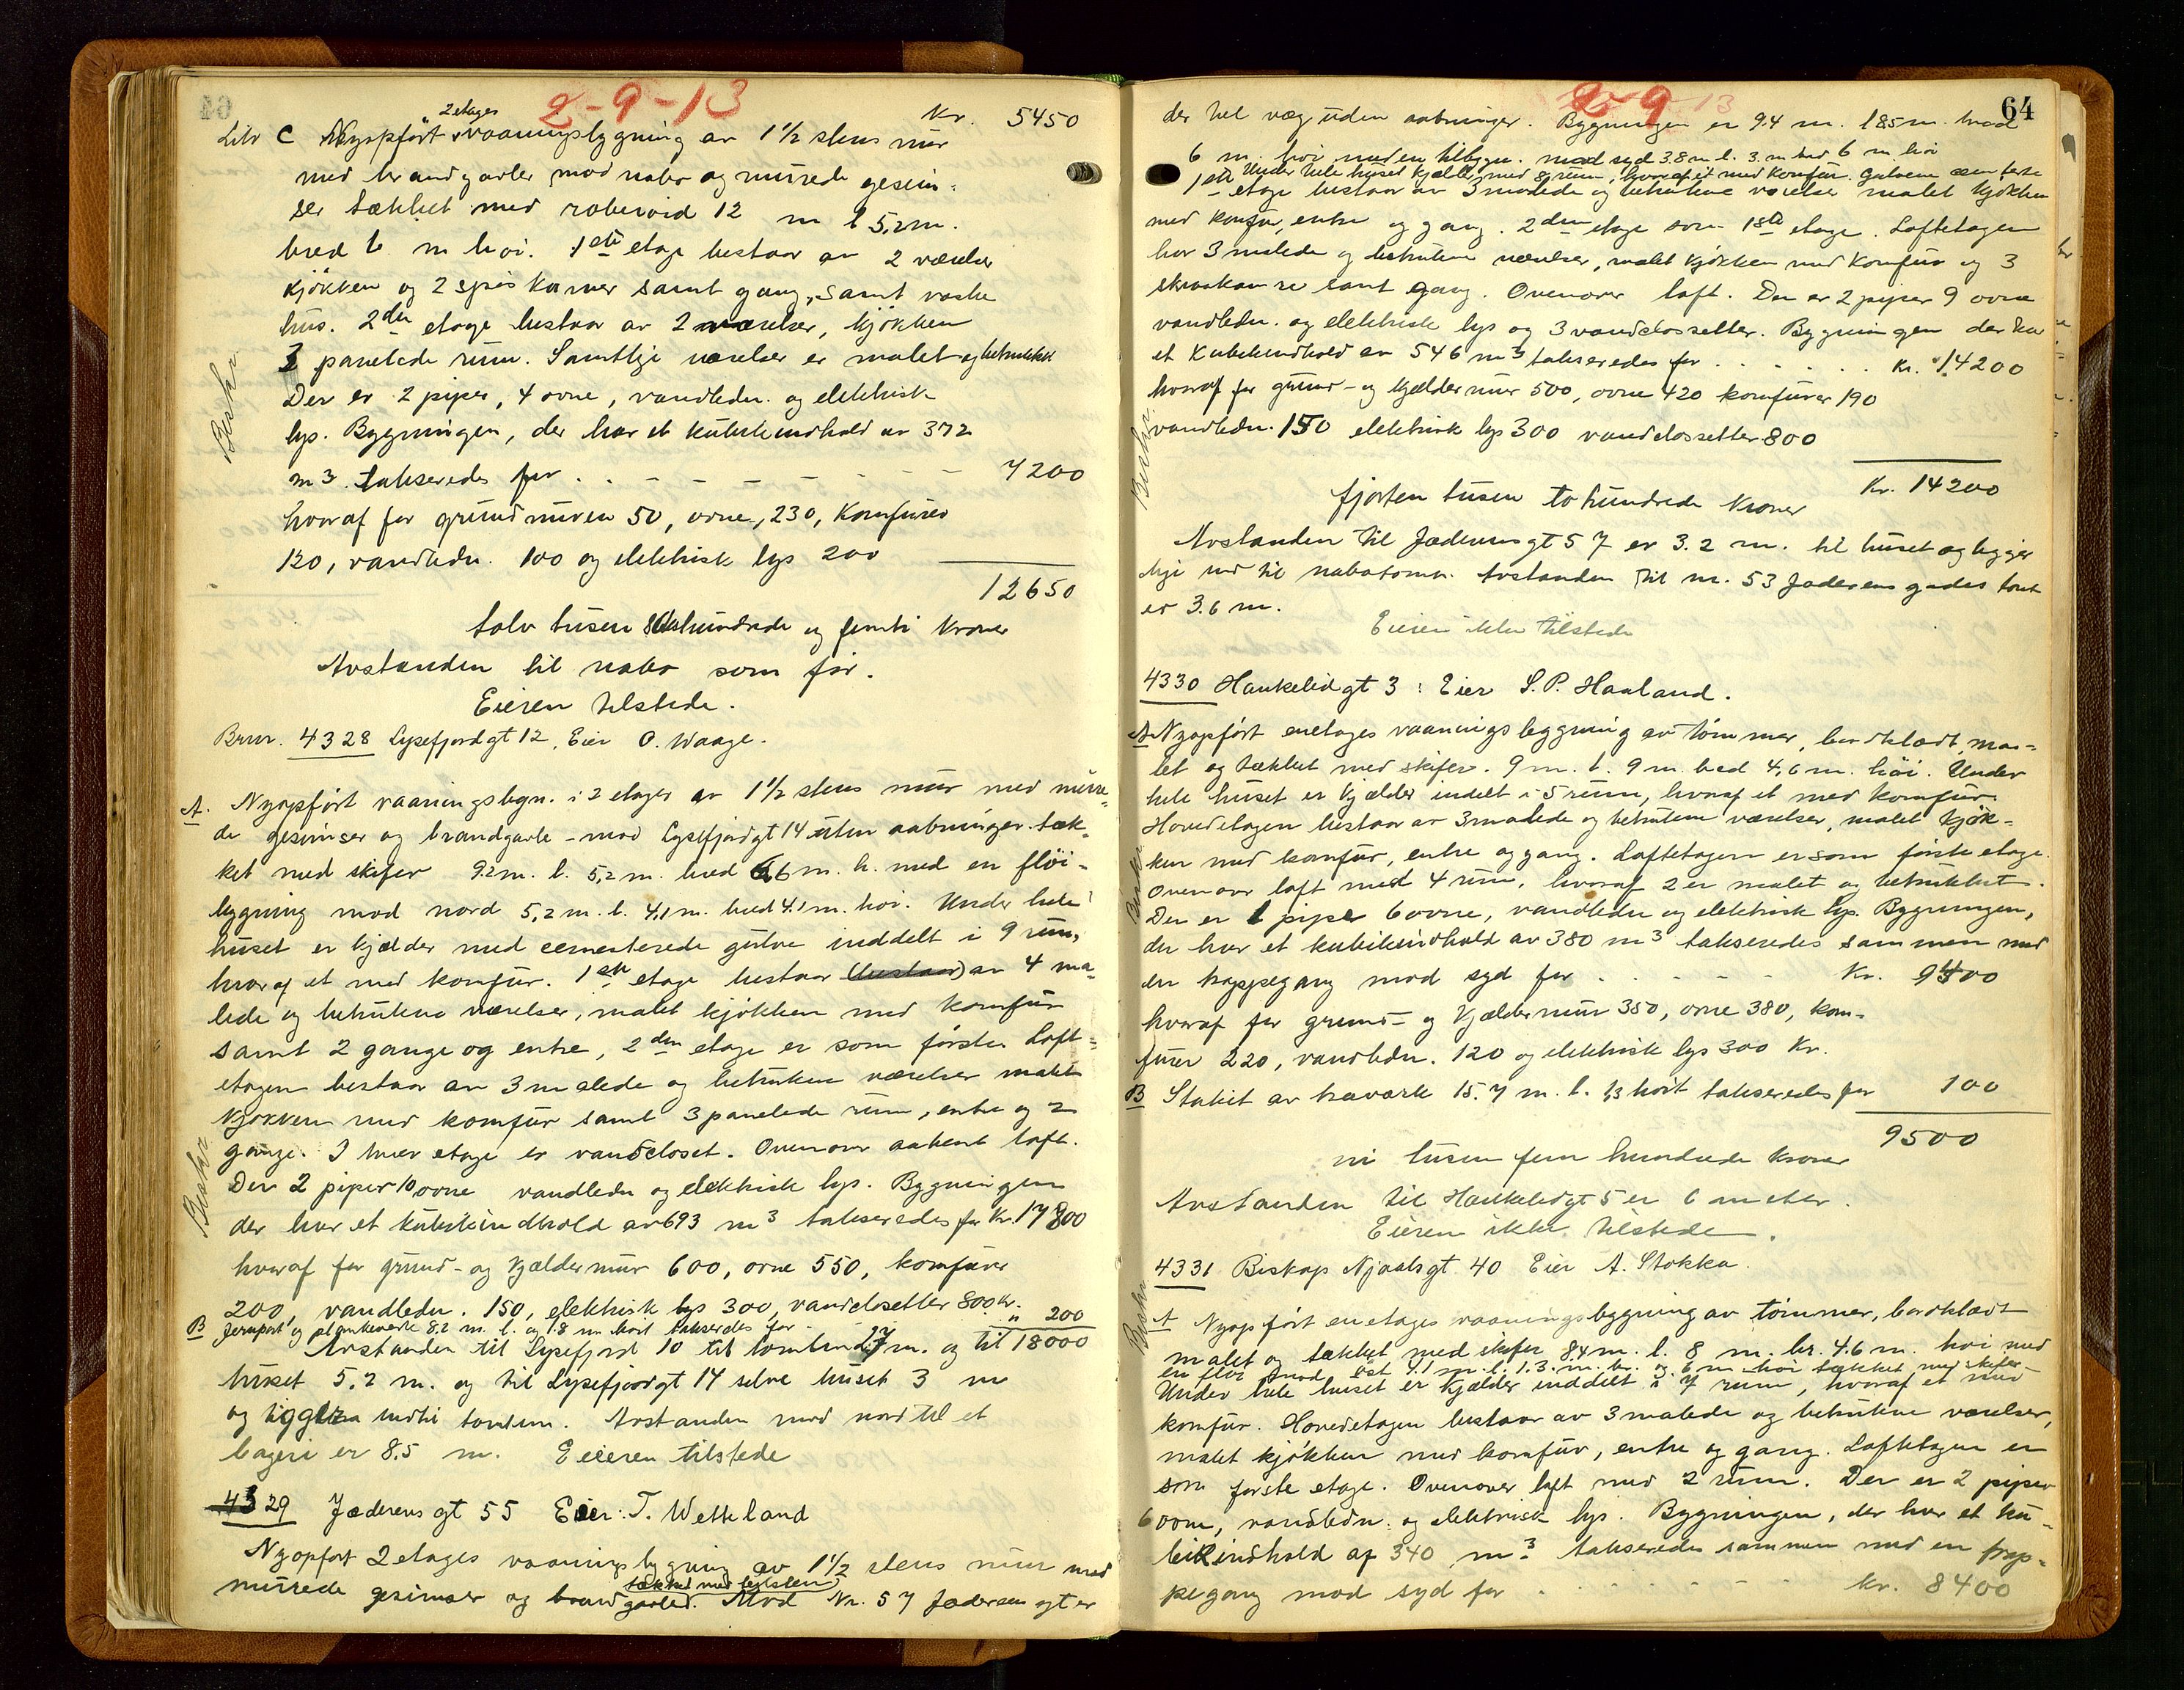 2-9-13
Kr. 5450
2 etages
Litr C Nyopført vaaningsbygning av 1½ stens mur
med brandgavler mod nabo og murede gesim-
ser tækket med roberoid 12 m l 5,2 m.
bred 6 m høi. 1ste etage bestaar av 2 værelser
kjøkken og 2 spiskamer samt gang, samt vaske
hus. 2den etage bestaar av 2 værelser, kjøkken
3 panelede rum. Samtlige værelser er malet og betrukket
Der er 2 piper, 4 ovne, vandledn. og elektrisk
lys. Bygningen, der har et kubikindhold av 372
m3. takseredes for . . - - - - - - 7200
hvoraf for grundmuren 50, ovne, 230, Komfurer
120, vandledn. 100 og elektrisk lys 200
12650
tolv tusen sekshundrede og femti Kroner
Avstanden til nabo som før.
Eieren tilstede.
Beskr.
Brnr. 4328 Lysefjordgt 12, Eier O. Waage.
A. Nyopført vaaningsbygn. i 2 etager av 1½ stens mur med mure-
de gesimser og brandgavle - mod Lysefjordgt 14 uten aabninger. tæk-
ket med skifer 9.2 m. l. 5,2 m. bred 6,6 m. h. med en fløi-
bygning mod nord 5,2 m. l. 4,1 m. bred 4.1 m. høi. Under hele
huset er kjælder med cementerede gulve inddelt i 9 rum,
hvoraf et med komfur. 1ste etage bestaar (bestaar) av 4 ma-
lede og betrukne værelser, malet kjøkken med komfur
samt 2 gange og entre, 2den etage er som første. Loft-
etagen bestaar av 3 malede og betrukne værelser malet
kjøkken med komfur samt 3 panelede rum, entre og 2
gange. I hver etage er vandcloset. Ovenover aabent loft.
Der 2 piper 10 ovne vandledn og elektrisk lys. Bygningen
der har et kubikindhold av 693 m3 takseredes for Kr. 17800
hvoraf for grund- og kjældermur 600, ovne 550, komfurer
200, vandledn. 150, elektrisk lys 300, vandclosetter 800 kr.
B Jernport og plankeverk 8,2 m. l. og 1.8 m høit takseredes for - - " 200
Avstanden til Lysefjord 10 til tomten 2,7 m. og til 18000
huset 5.2 m. og til Lysefjordgt 14 selve huset 3 m
og ligger indtil tomten. Avstanden mod nord til et
bageri er 8.5 m. Eieren tilstede
Beskr
4329 Jæderensgt 55 Eier: T. Wetteland
Nyopført 2 etages vaaningsbygning av 1½ stens mur med
tækket med teglsten
murede gesimser og brandgavled. Mod Nr. 57 Jæderensgt er
2-9-13
64
der hel væg uden aabninger. Bygningen er 9.4 m. l 8.5 m. bred
6 m. høi med en tilbygn. mod syd 3.8 m l. 3. m bred 6 m. høi
Under hele huset kjælder med 8 rum, hvoraf et med Komfur. Gulvene cementerte
1ste etage bestaar av 3 malede og betrukne værelser malet kjøkken
med komfur, entre og gang. 2den etage som 1ste etage. Loftetagen
har 3 malede og betrukne værelser, malet kjøkken med Komfur og 3
skraakamre samt gang. Ovenover loft. Der er 2 piper 9 ovne
vandledn. og elektrisk lys og 3 vandclossetter. Bygningen der har
et Kubikindhold av 546 m3 takseredes for . . . . . . Kr. 14200
hvoraf for grund- og kjældermur 500, ovne 420 komfurer 190
vandledn. 150 elektrisk lys 300 vandclossetter 800
Kr. 14200
fjorten tusen to hundrede Kroner
Beskr.
Avstanden til Jæderensgt 57 er 3.2 m. til huset og ligger
like ind til nabotomt. Avstanden til nr. 53 Jæderens gades tomt
er 3.6 m.
Eieren ikke tilstede
4330 Haukelidgt 3: Eier S. P. Haaland.
A Nyopført enetages vaaningsbyggning av tømmer, bordklædt, ma-
let og tækket med skifer. 9 m. l. 9 m. bred 4,6 m. høi. Under
hele huset er kjælder indelt i 5 rum, hvoraf et med komfur.
Hovedetagen bestaar av 3 malede og betrukne værelser, malet kjøk-
ken med komfur, entre og gang. Loftetagen er som første etage.
Ovenover loft med 4 rum, hvoraf 2 er malet og betrukket.
Der er 1 pipe 6 ovne, vandledn og elektrisk lys. Bygningen,
der har et kubikindhold av 380 m3 takseredes sammen med
en trappegang mod syd for . . - - - - Kr. 9400
hvoraf for grund- og kjældermur 350, ovne 380, kom-
furer 220, vandledn. 120 og elektrisk lys 300 Kr.
B Stakit av træværk 15.7 m. l. 1,3 høit takseredes for 100
9500
ni tusen fem hundrede kroner
Beskr
Avstanden til Haukelidgt 5 er 6 meter.
Eieren ikke tilstede.
4331 Biskop Njaalsgt. 40 Eier A. Stokka.
A Nyopført enetages vaaningsbygning av tømmer, bordklædt
malet og tækket med skifer 8,4 m. l. 8 m. br. 4.6 m. høi med
en fløi mod øst 4.1 m. l. 1.3. m. br. og 6 m høi tækket med skifer
Under hele huset er kjælder inddelt i 7 rum, hvoraf et med
komfur. Hovedetagen bestaar av 3 malede og betrukne værelser,
malet kjøkken med komfur, entre og gang. Loftetagen er
som første etage. Ovenover loft med 2 rum. Der er 2 piper
6 ovne, vandledn. og elektrisk lys. Bygningen, der har et ku-
bikindhold af 340 m3 takseredes sammen med en trap-
pegang mod syd for . - - - - - kr. 8400
Beskr